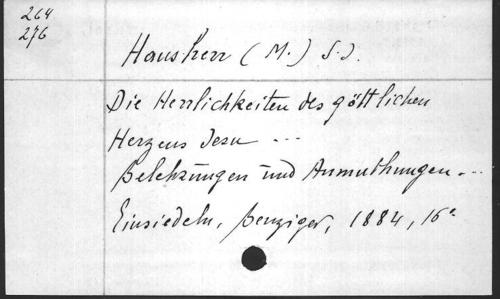 264
276
Hausherr (M.) S.J.
Die Herrlichkeiten des göttlichen
Herzens Jesu ...
Belehrungen und Anmuthungen...
Einsiedeln, Benziger, 1884, 16°